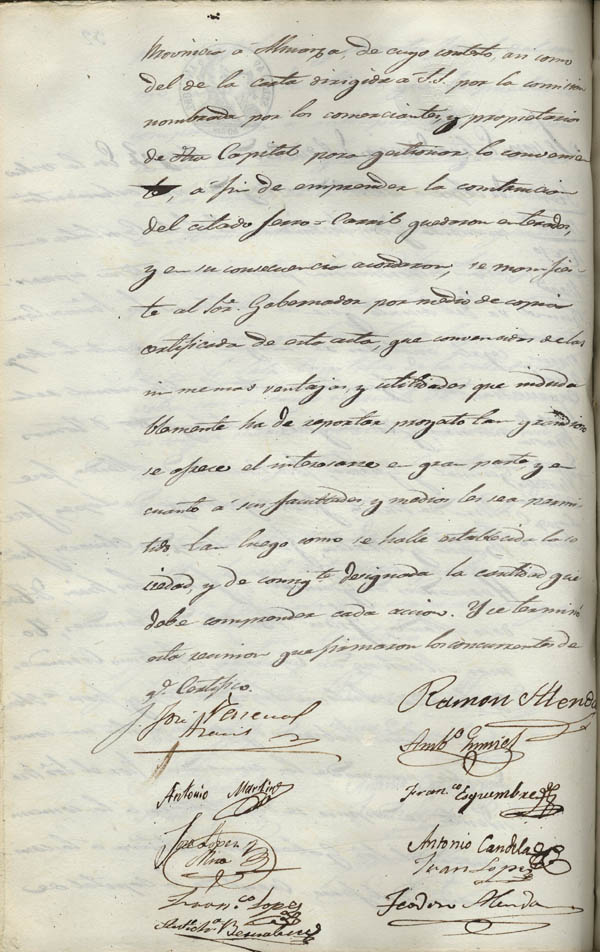 Provincia á Almanza, de cuyo contesto, asi como
del de la carta dirigida a S.S. por la comision
nombrada por los comerciantes y propietarios
de dha Capital para gestionar lo convenien
te, á fin de emprender la construccion
del citado ferro-Carril quedaron enterados,
y en su consecuencia acordaron, se manifies-
te al Sor. Gobernador por medio de copia
certificada de esta acta, que convencidos de las
inmensas ventajas, y utilidades que induda
blemente ha de reportar proyecto tan grandioso
se ofrece el interesarse en gran parte y en
cuanto á sus facultades, y medios les sea permi-
tido tan luego como se halle establecida la so
ciedad, y de consigte designada la cantidad que
debe comprender cada accion. Y se terminó
esta reunion que firmaron los concurrentes de
q. Certifico.
José Pascual
Ramon Alenda
Ambo.
Antonio Martinez
Fran.co Esquembre
José Lopez
Mira
Antonio Candela
Juan Lopez
Fran.co Lopez
Teodoro Alenda
Antonio Bernabeu